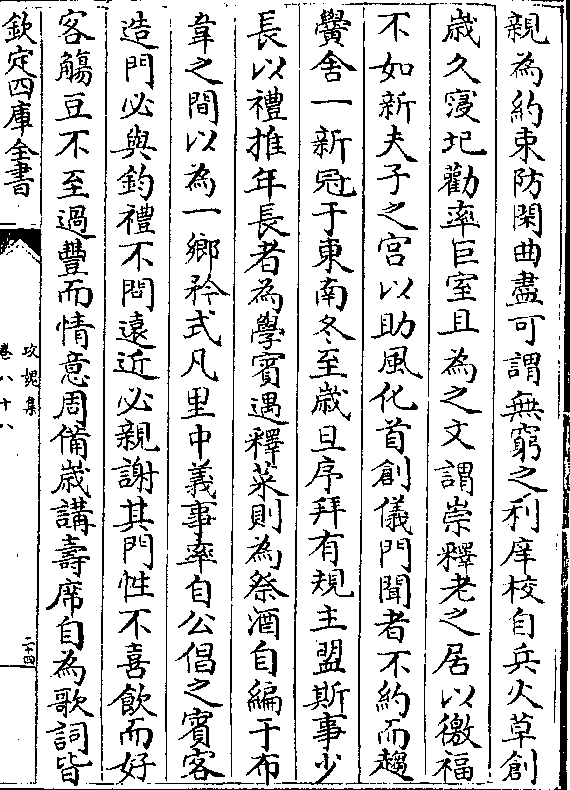 親為約束防閑曲盡可謂無窮之利庠校自兵火草創
歳久寖圮勸率巨室且為之文謂崇釋老之居以徼福
不如新夫子之宮以助風化首創儀門聞者不約而趨
黌舍一新冠于東南冬至歳旦序拜有規主盟斯事少
長以禮推年長者為學賓遇釋菜則為祭酒自編于布
韋之間以為一鄉矜式凡里中義事率自公倡之賓客
造門必與鈞禮不問遠近必親謝其門性不喜飲而好
客觴豆不至過豐而情意周備歳講壽席自為歌詞皆
欽定四庫全書
攻媿集
卷八十八
二十四